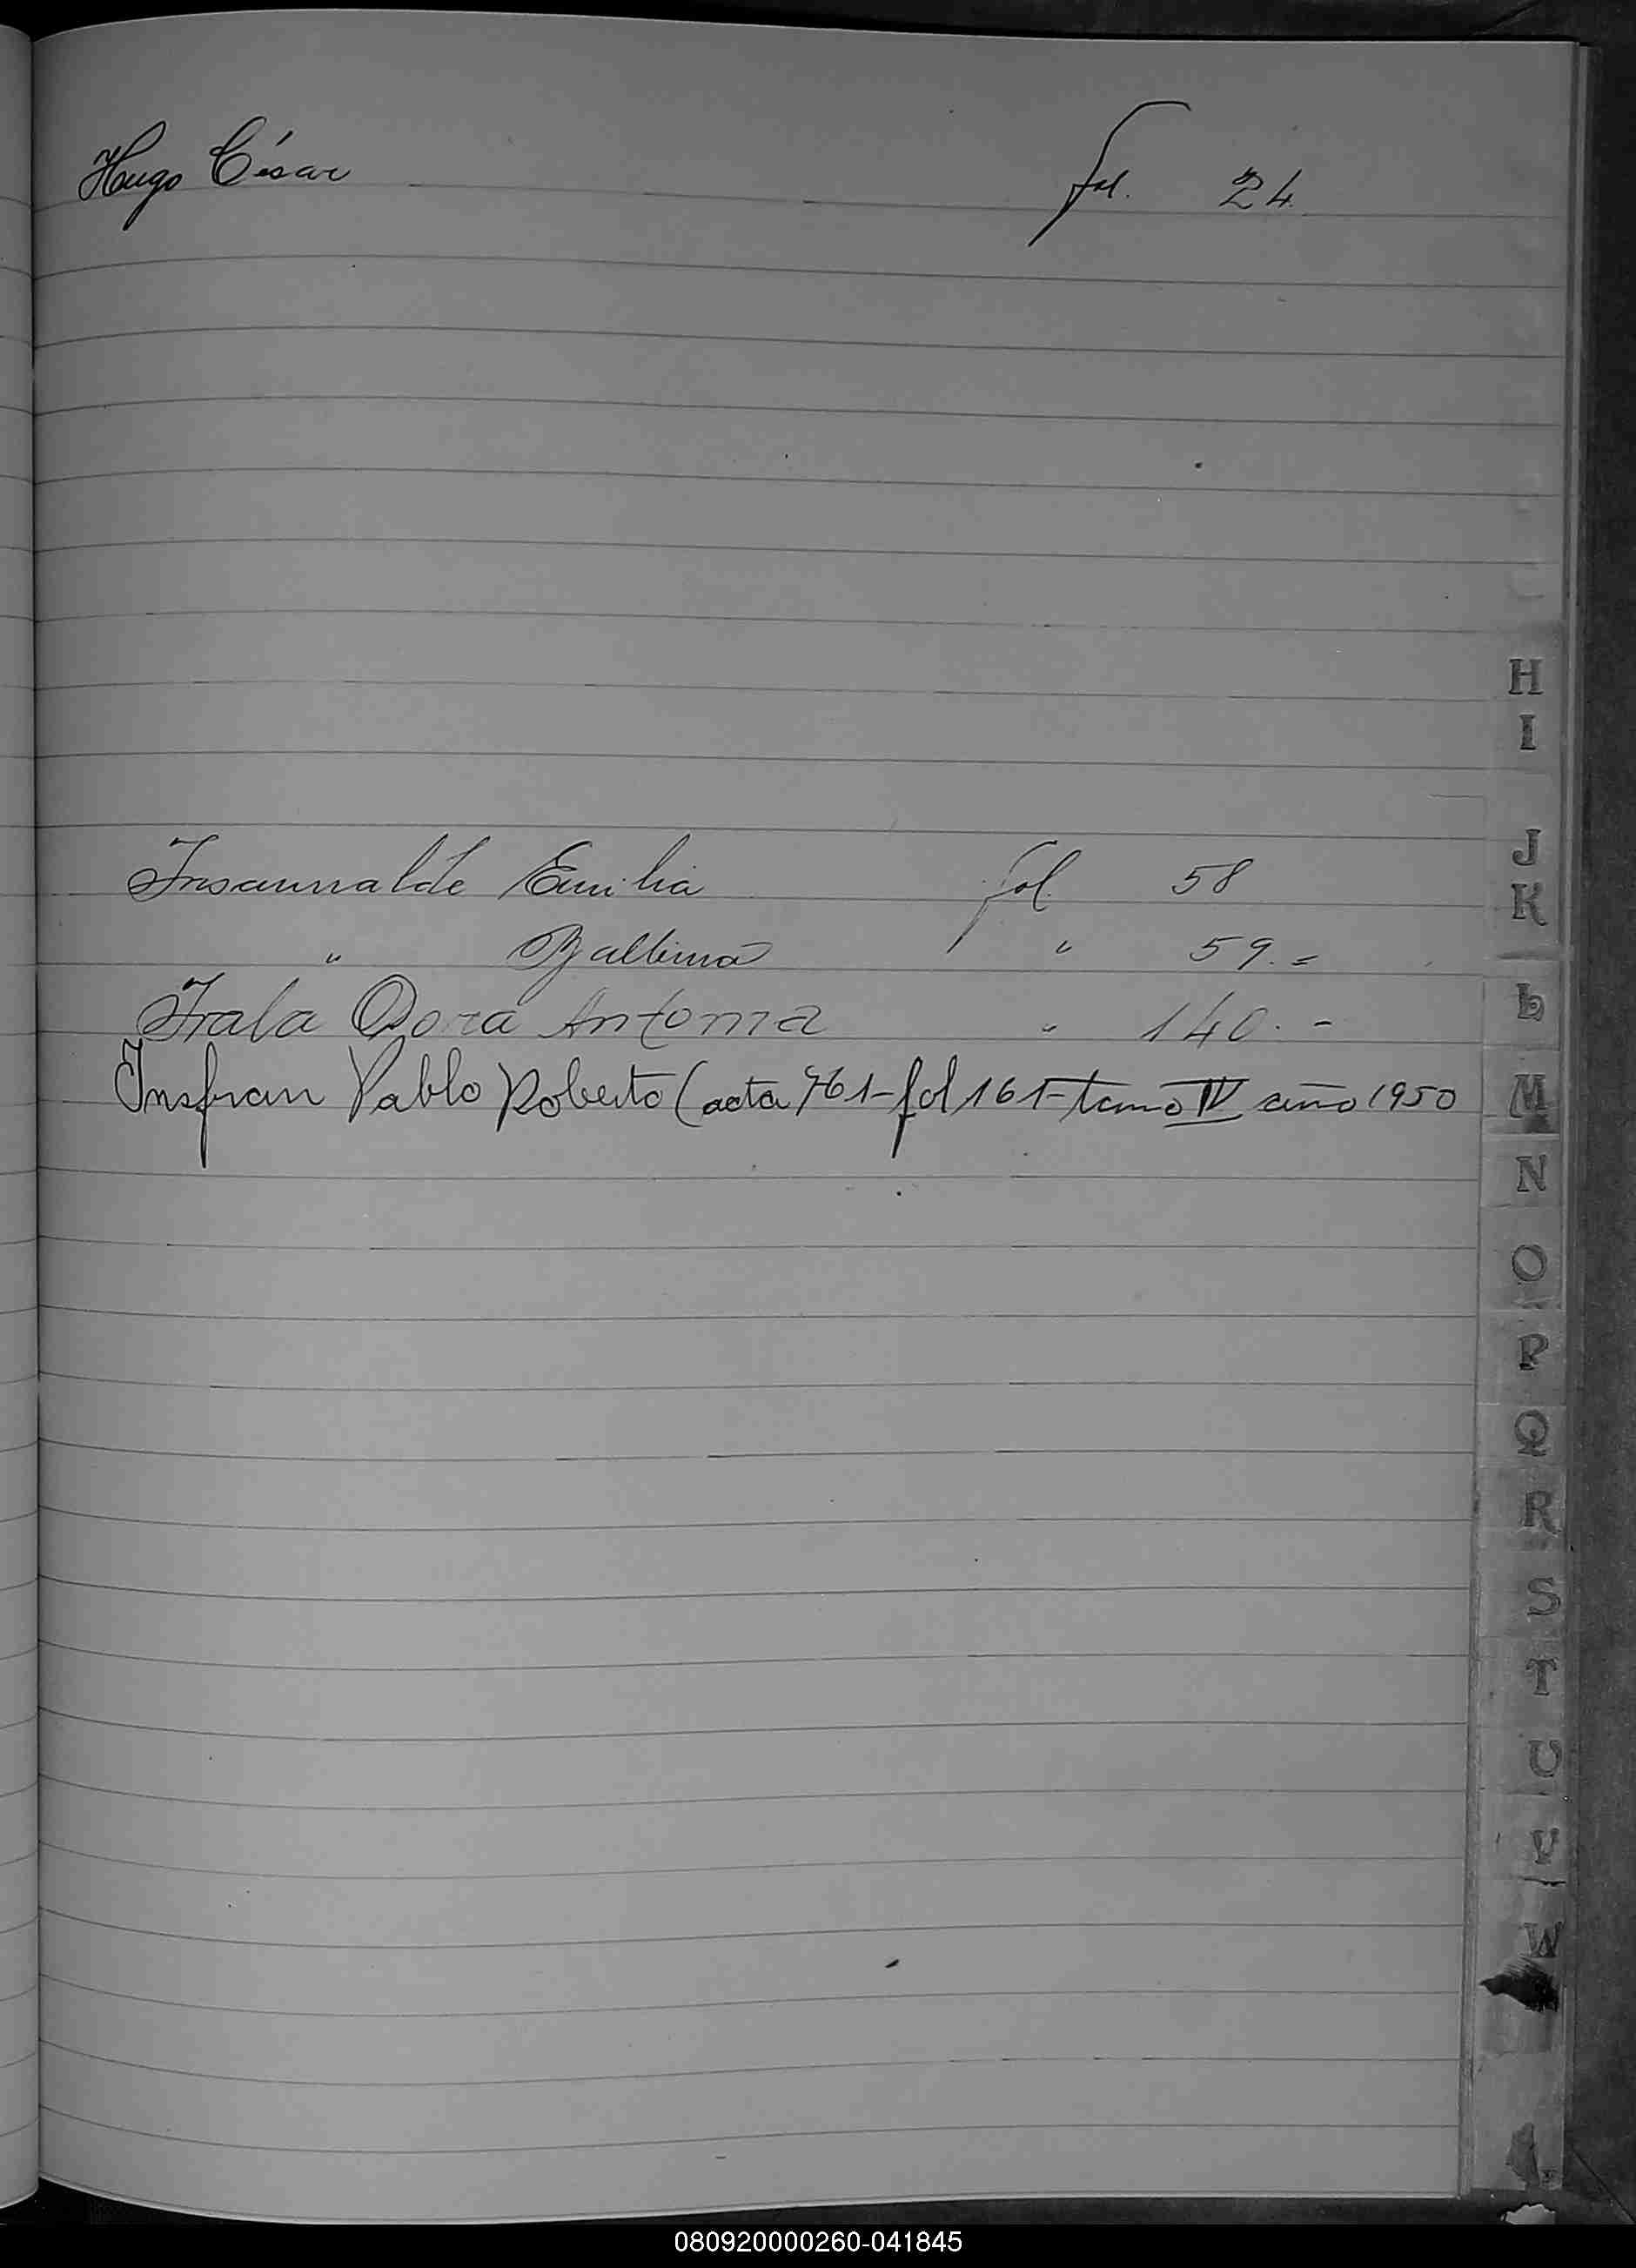 Hugo César fol. 24
H
I
J
K
Insaurralde Emilia fol. 58
" Balbina " 59.=
L
Irala Dora Antonia " 140.-
Insfran Pablo Roberto (acta 761-fol 161-tomo IV año 1950
M
N
O
P
Q
R
S
T
U
V
W
080920000260-041845